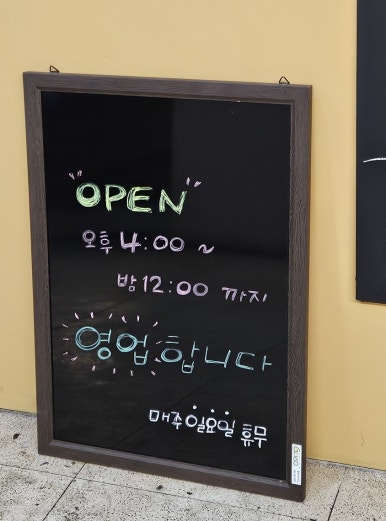 "OPEN"
오후 4:00 ~
밤 12:00 까지
영업합니다
매주 일요일 휴무